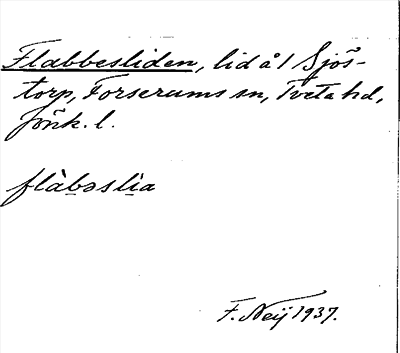 Flabbesliden, lid å 1 Sjös-
torp, Forserums sn, Tveta hd,
Jönk. l.
flàbəsli̱a
F. Neij 1937.